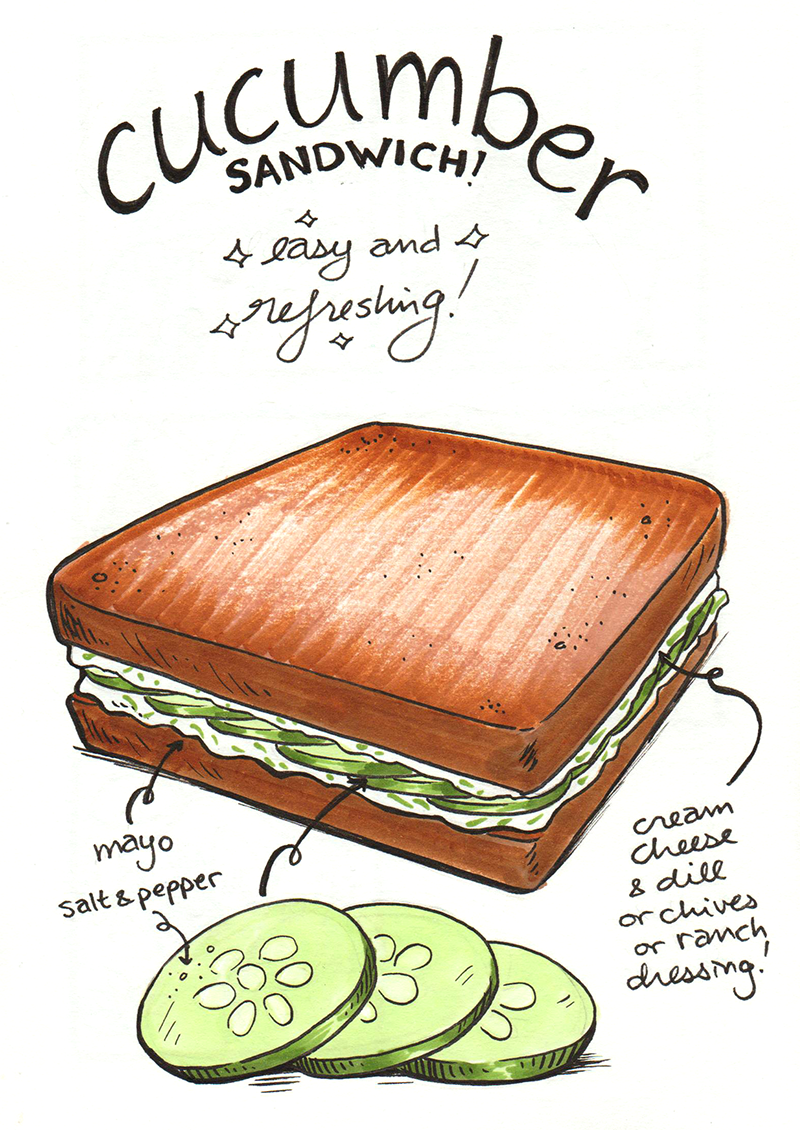 cucumber
SANDWICH!
easy and
refreshing!
mayo
salt & pepper
cream
cheese
& dill
or chives
or ranch
dressing!